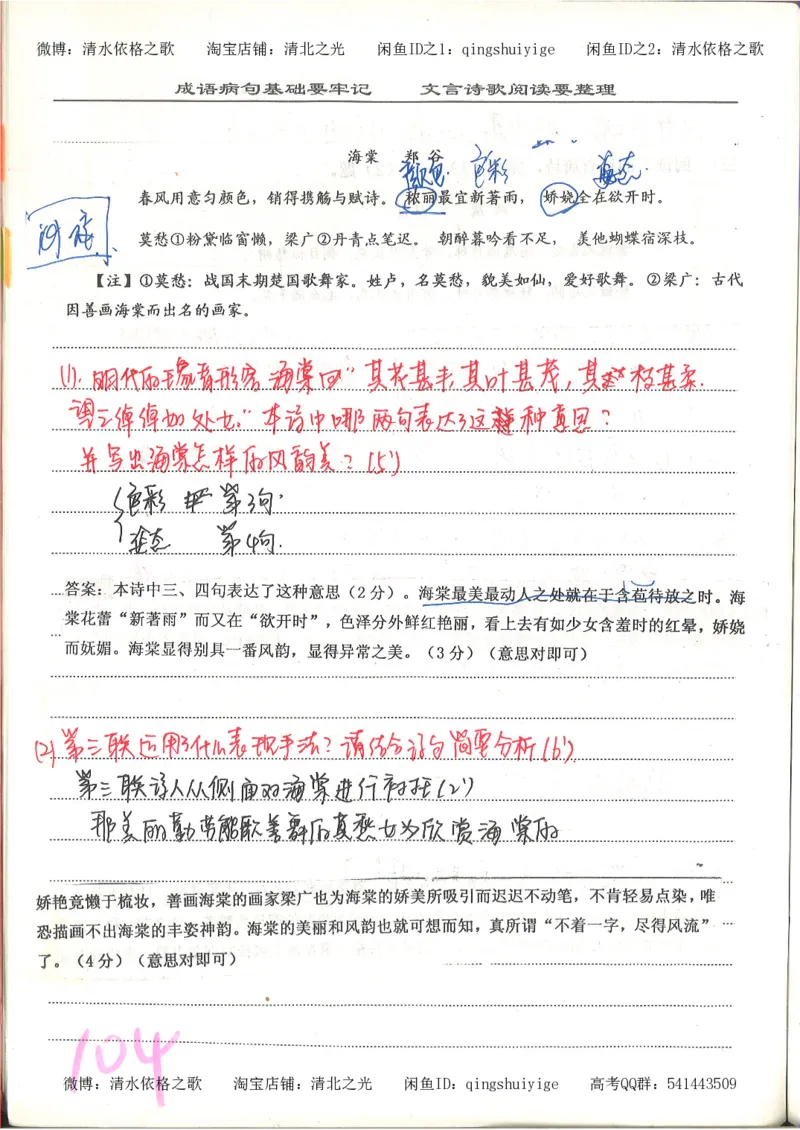 微博：清水依格之歌　　淘宝店铺：清北之光　　闲鱼ID之1：qingshuiyige　　闲鱼ID之2：清水依格之歌
成语病句基础要牢记　　文言诗歌阅读要整理
海棠　　郑谷
颜色　色彩　姿态
春风用意匀颜色，销得携觞与赋诗。秾丽最宜新著雨，娇娆全在欲开时。
莫愁①粉黛临窗懒，梁广②丹青点笔迟。 朝醉暮吟看不足， 羡他蝴蝶宿深枝。
【注】①莫愁：战国末期楚国歌舞家。姓卢，名莫愁，貌美如仙，爱好歌舞。②梁广：古代
因善画海棠而出名的画家。
(1). 明代的王象晋形容海棠曰"其花甚丰，其叶甚茂，其枝甚柔.
望之绰绰如处女."本诗中哪两句表达了这种意思？
并写出海棠怎样的风韵美？(5')
色彩 第3句.
姿态 第4句.
答案：本诗中三、四句表达了这种意思（2分）。海棠最美最动人之处就在于含苞待放之时。海
棠花蕾“新著雨”而又在“欲开时”，色泽分外鲜红艳丽，看上去有如少女含羞时的红晕，娇娆
而妩媚。海棠显得别具一番风韵，显得异常之美。（3分）（意思对即可）
(2) 第三联运用了什么表现手法？请结合诗句简要分析(6').
第三联诗人从侧面对海棠进行衬托(2')
那美丽勤劳能歌善舞的莫愁女为欣赏海棠的
娇艳竟懒于梳妆，善画海棠的画家梁广也为海棠的娇美所吸引而迟迟不动笔，不肯轻易点染，唯
恐描画不出海棠的丰姿神韵。海棠的美丽和风韵也就可想而知，真所谓“不着一字，尽得风流”
了。（4分）（意思对即可）
104
微博：清水依格之歌　　淘宝店铺：清北之光　　闲鱼ID：qingshuiyige　　高考QQ群：541443509